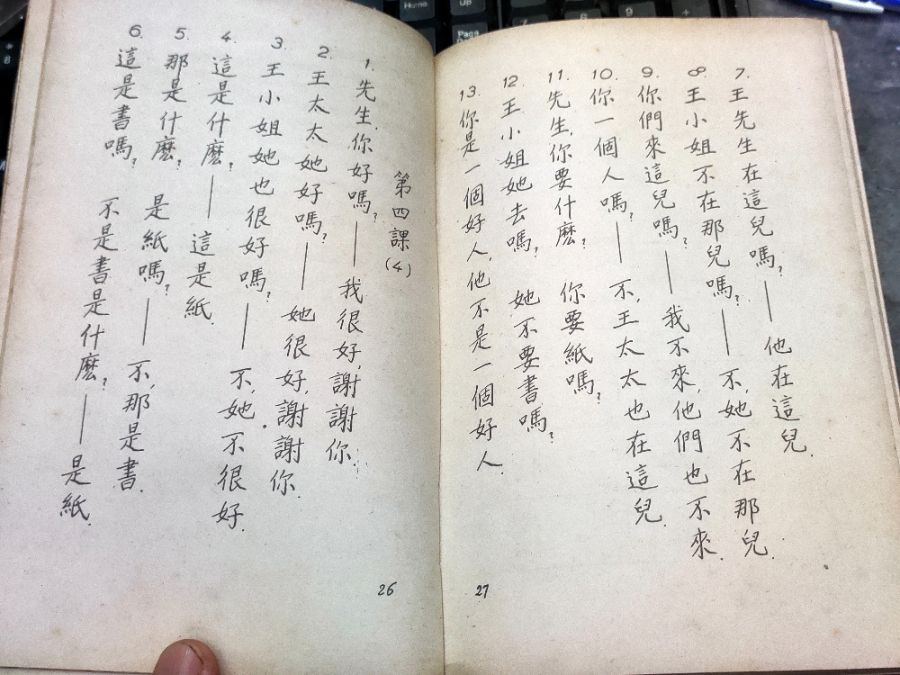 第四課(4)
1. 先生,你好嗎?——我很好,謝謝你.
2. 王太太她好嗎?——她很好,謝謝你.
3. 王小姐她也很好嗎?——不,她不很好.
4. 這是什麼?——這是紙.
5. 那是什麼? 是紙嗎?——不,那是書.
6. 這是書嗎? 不是書是什麼?——是紙.
26
7. 王先生在這兒嗎?——他在這兒.
8. 王小姐不在那兒嗎?——不,她不在那兒.
9. 你們來這兒嗎?——我不來,他們也不來.
10. 你一個人嗎?——不,王太太也在這兒.
11. 先生,你要什麼? 你要紙嗎?
12. 王小姐她去嗎? 她不要書嗎?
13. 你是一個好人,他不是一個好人.
27
Home
Up
Page